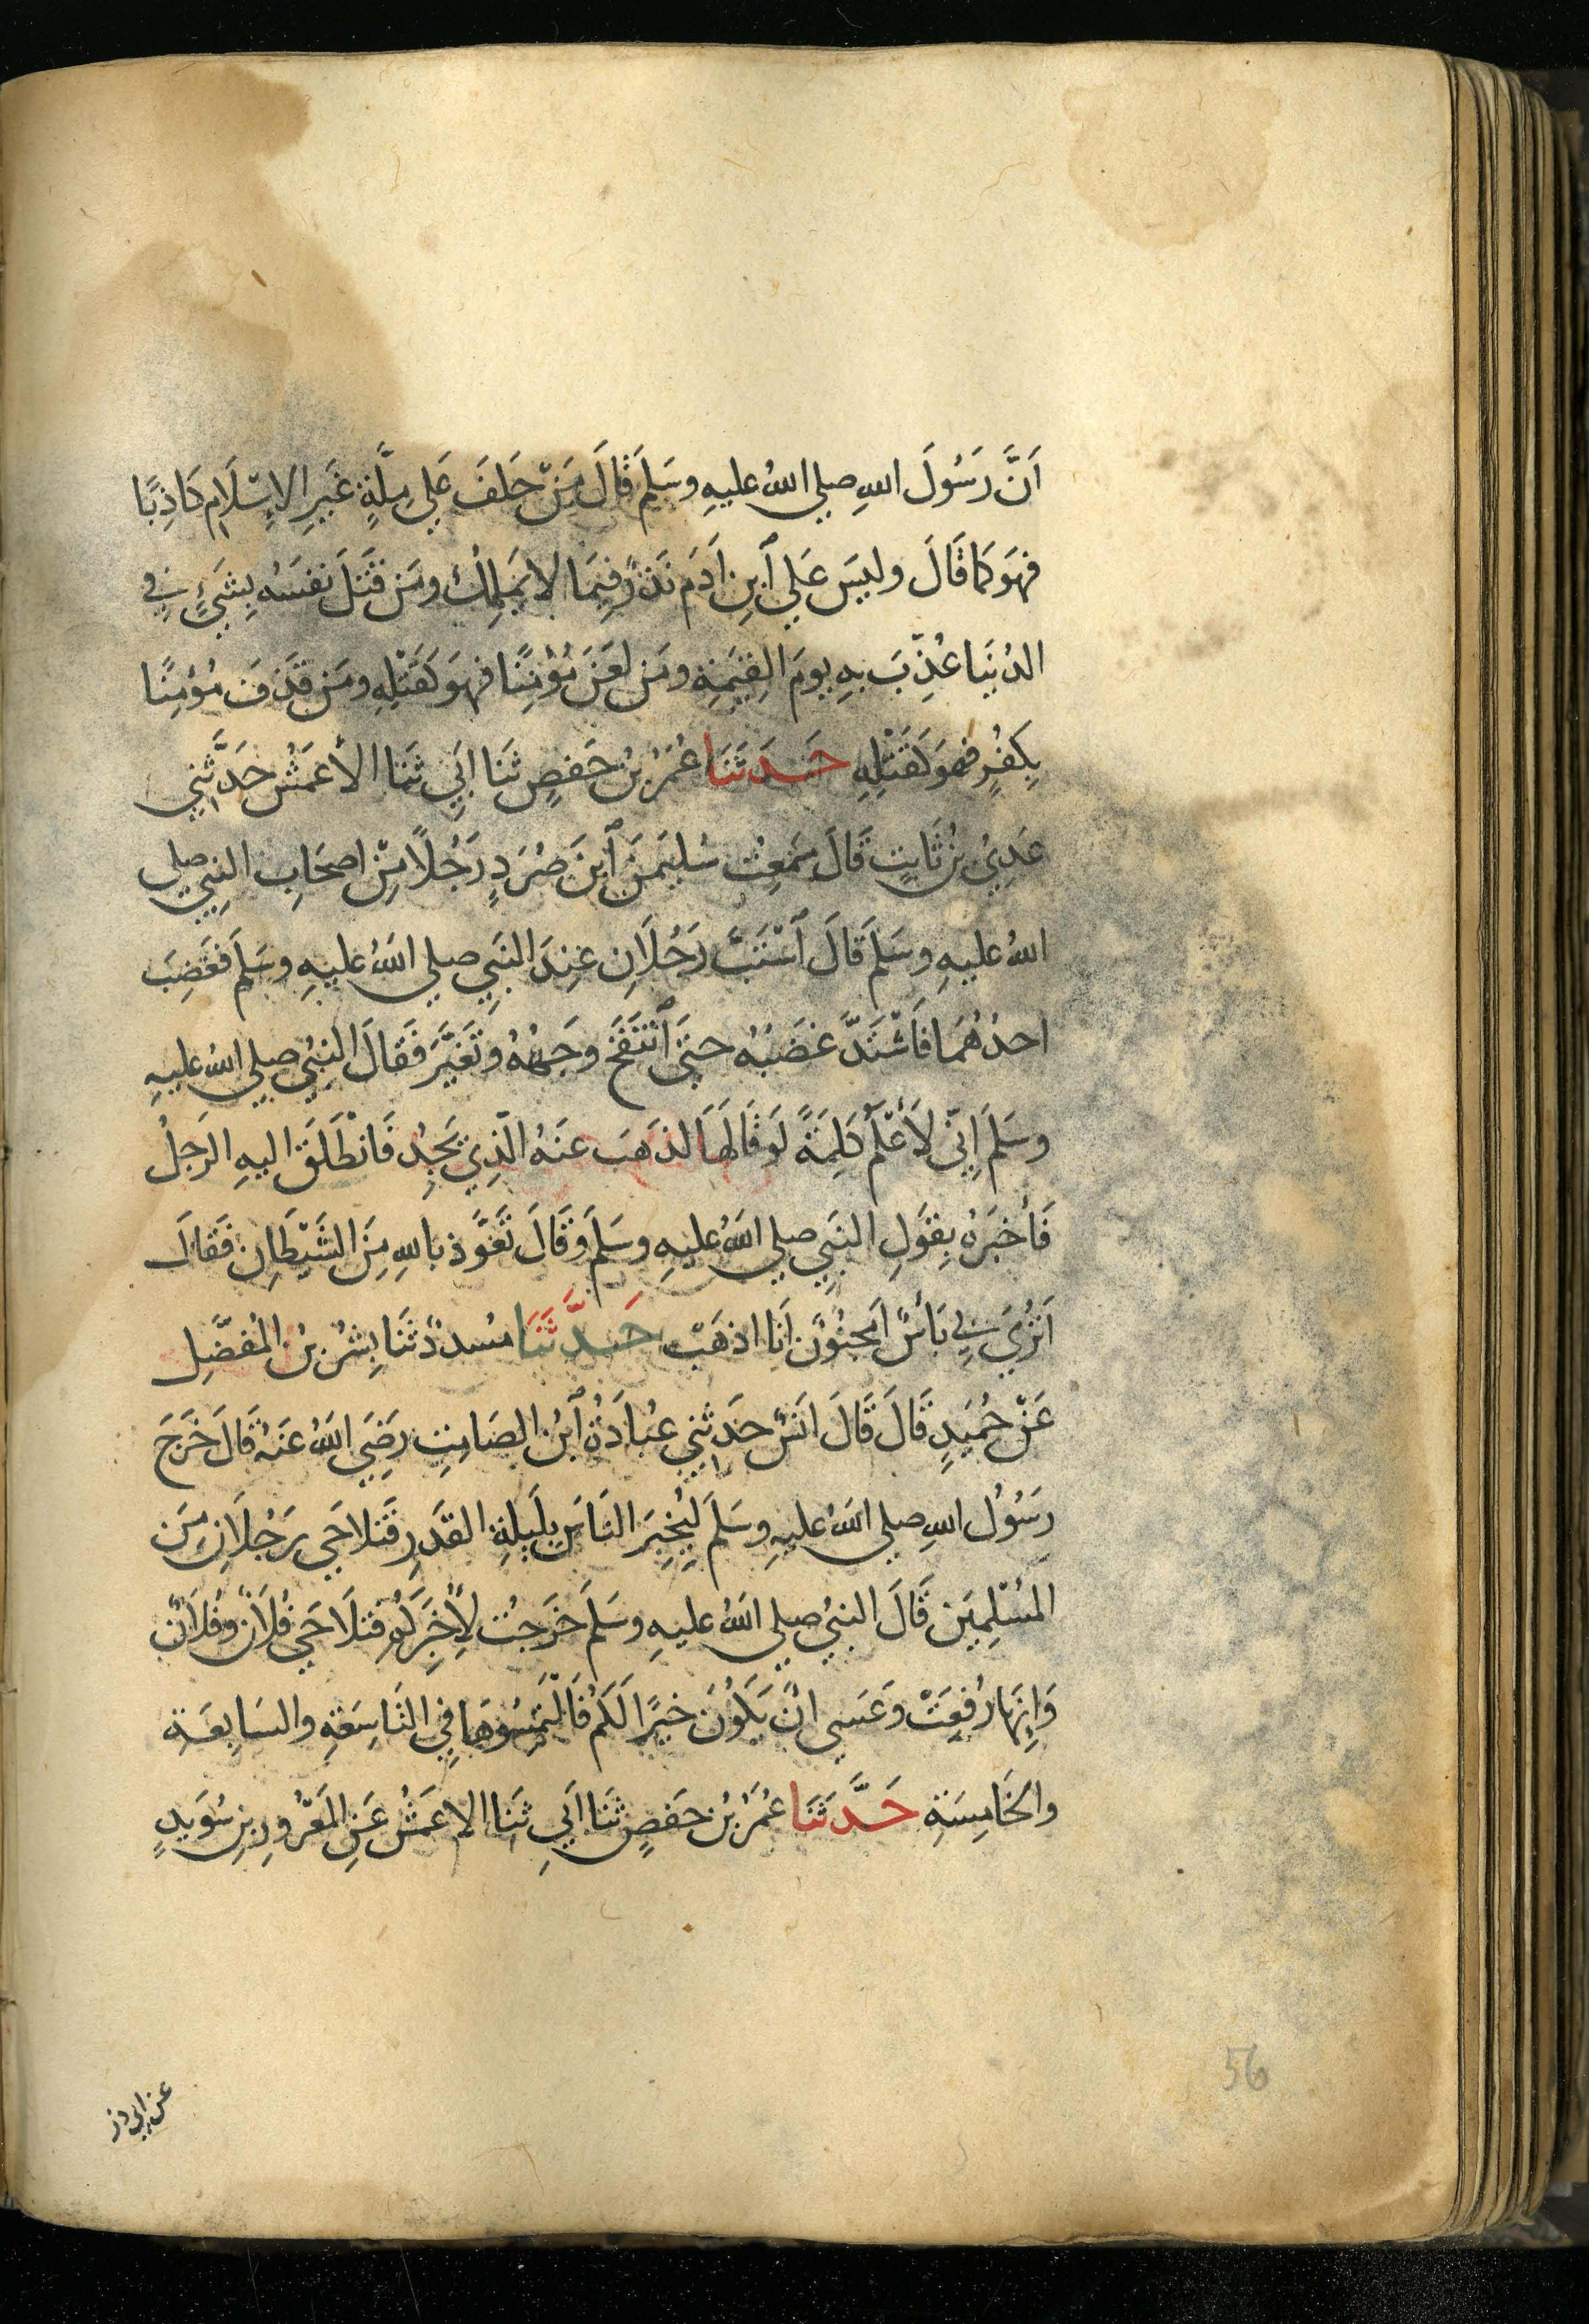 اَنَّ رَسُولَ اللهِ صلي اللهُ عليهِ وسَلمَ قَالَ مَنْ حَلفَ عَلي مِلَّةٍ غَيرِ الاِسْلَامِ كَاذِبًا
فهوَ كمَا قَالَ وليسَ عَلي اَبنِ اَدَمَ نَذرٌ فيمَا لا يَملِكُ ومَن قَتَلَ نفسَهُ بِشَيْءٍ في
الدُنيَا عُذِّبَ بهِ يومَ القِيٰمَةِ ومَن لعَنَ مُؤْمِنًا فهوَ كَقَتْلِهِ ومَن قَذَفَ مُؤمِنًا
بِكفُرٍ فهوَ كَقَتْلِهِ حَدَثَنَا عُمَرُ بنُ حَفصٍ ثَنَا اَبِي ثَنَا الأعمَشُ حَدَّثَنِي
عَدِيُ بنُ ثَابِتٍ قَالَ سَمِعتُ سُليمٰنَ اَبنَ صُرَدٍ رَجُلاً مِنْ اصحَابِ النبِيِ صلي
اللهُ عليهِ وسَلمَ قَالَ اَسْتَبَّ رَجُلَانِ عِندَ النَبِيِ صلي اللهُ عليهِ وسَلمَ فغَضِبَ
احدُهُمَا فَاشْتَدَّ غضَبُهُ حتَى اَنْتَفَخَ وجَهُهُ وتَغَيَّرَ فقَالَ النبِيُ صلي اللهُ عليهِ
وسَلمَ اِنِّي لأَعْلَمُ كلِمَةً لَو قَالَهَا لذهَبَ عنَهُ الَّذِي يَجِدُ فَانْطَلَقَ اليهِ الرَجلُ
فَأخبَرَهُ بِقَولِ النَبِيِ صلي اللهُ عليهِ وسَلمَ وقَالَ تَعَوَّذ باللهِ مِنَ الشَيْطَانِ فقَالَ
اَتُرَي بِي بَأسٌ اَمجنُونٌ اَنَا اذهَبْ حَدَّثَنَا مُسددٌ ثنَا بِشرُ بنُ المُفضَّلِ
عَنْ حُمَيدٍ قَالَ قَالَ انَسٌ حدَثَنِي عُبادَةُ اَبنُ الصَامِتِ رضِيَ اللهُ عنَهُ قَالَ خَرَجَ
رسُولُ اللهِ صلي اللهُ عليهِ وسَلمَ لِيُخبِرَ النَاسَ بِلَيلةِ القَدرِ فتَلاحَي رَجُلَانِ مِنَ
المُسْلِمِينَ قَالَ النبيُ صلي اللهُ عليهِ وسَلمَ خرَجتُ لأُخبِرَكُم فتلَاحَي فُلَانٌ وفُلَانٌ
وَاِنهَا رُفِعَتْ وعَسَي انْ يَكُونَ خيرًا لَكُم فَالْتَمِسُوهَا في التَاسِعَةِ والسَابعَةِ
والخَامِسَةِ حَدَّثَنَا عُمَرُ بنُ حَفصٍ ثَنَا اَبِي ثَنَا الاعمَشُ عَنِ المَعْرُورِ بنِ سُوَيدٍ
56
عن ابي ذر